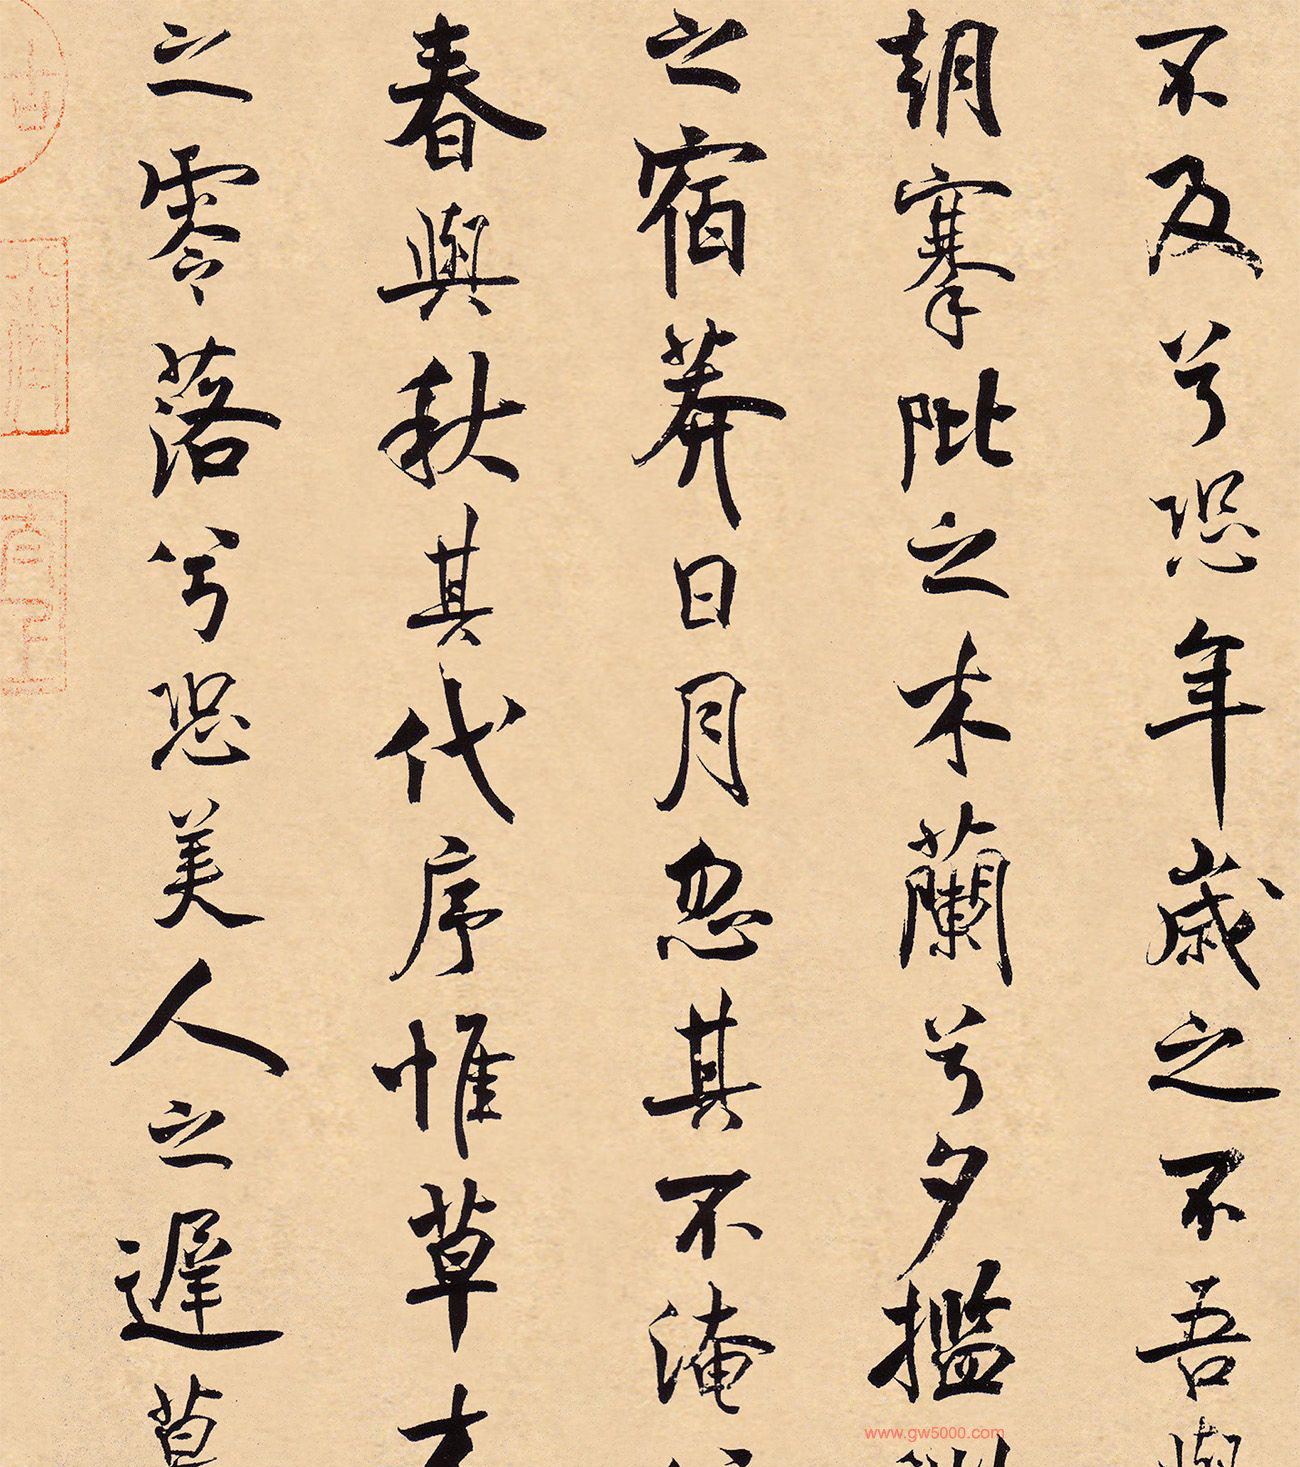 不及兮恐年歲之不吾與
朝搴阰之木蘭兮夕擥洲
之宿莽日月忽其不淹
春與秋其代序惟草木
之零落兮恐美人之遲莫
www.gw5000.com